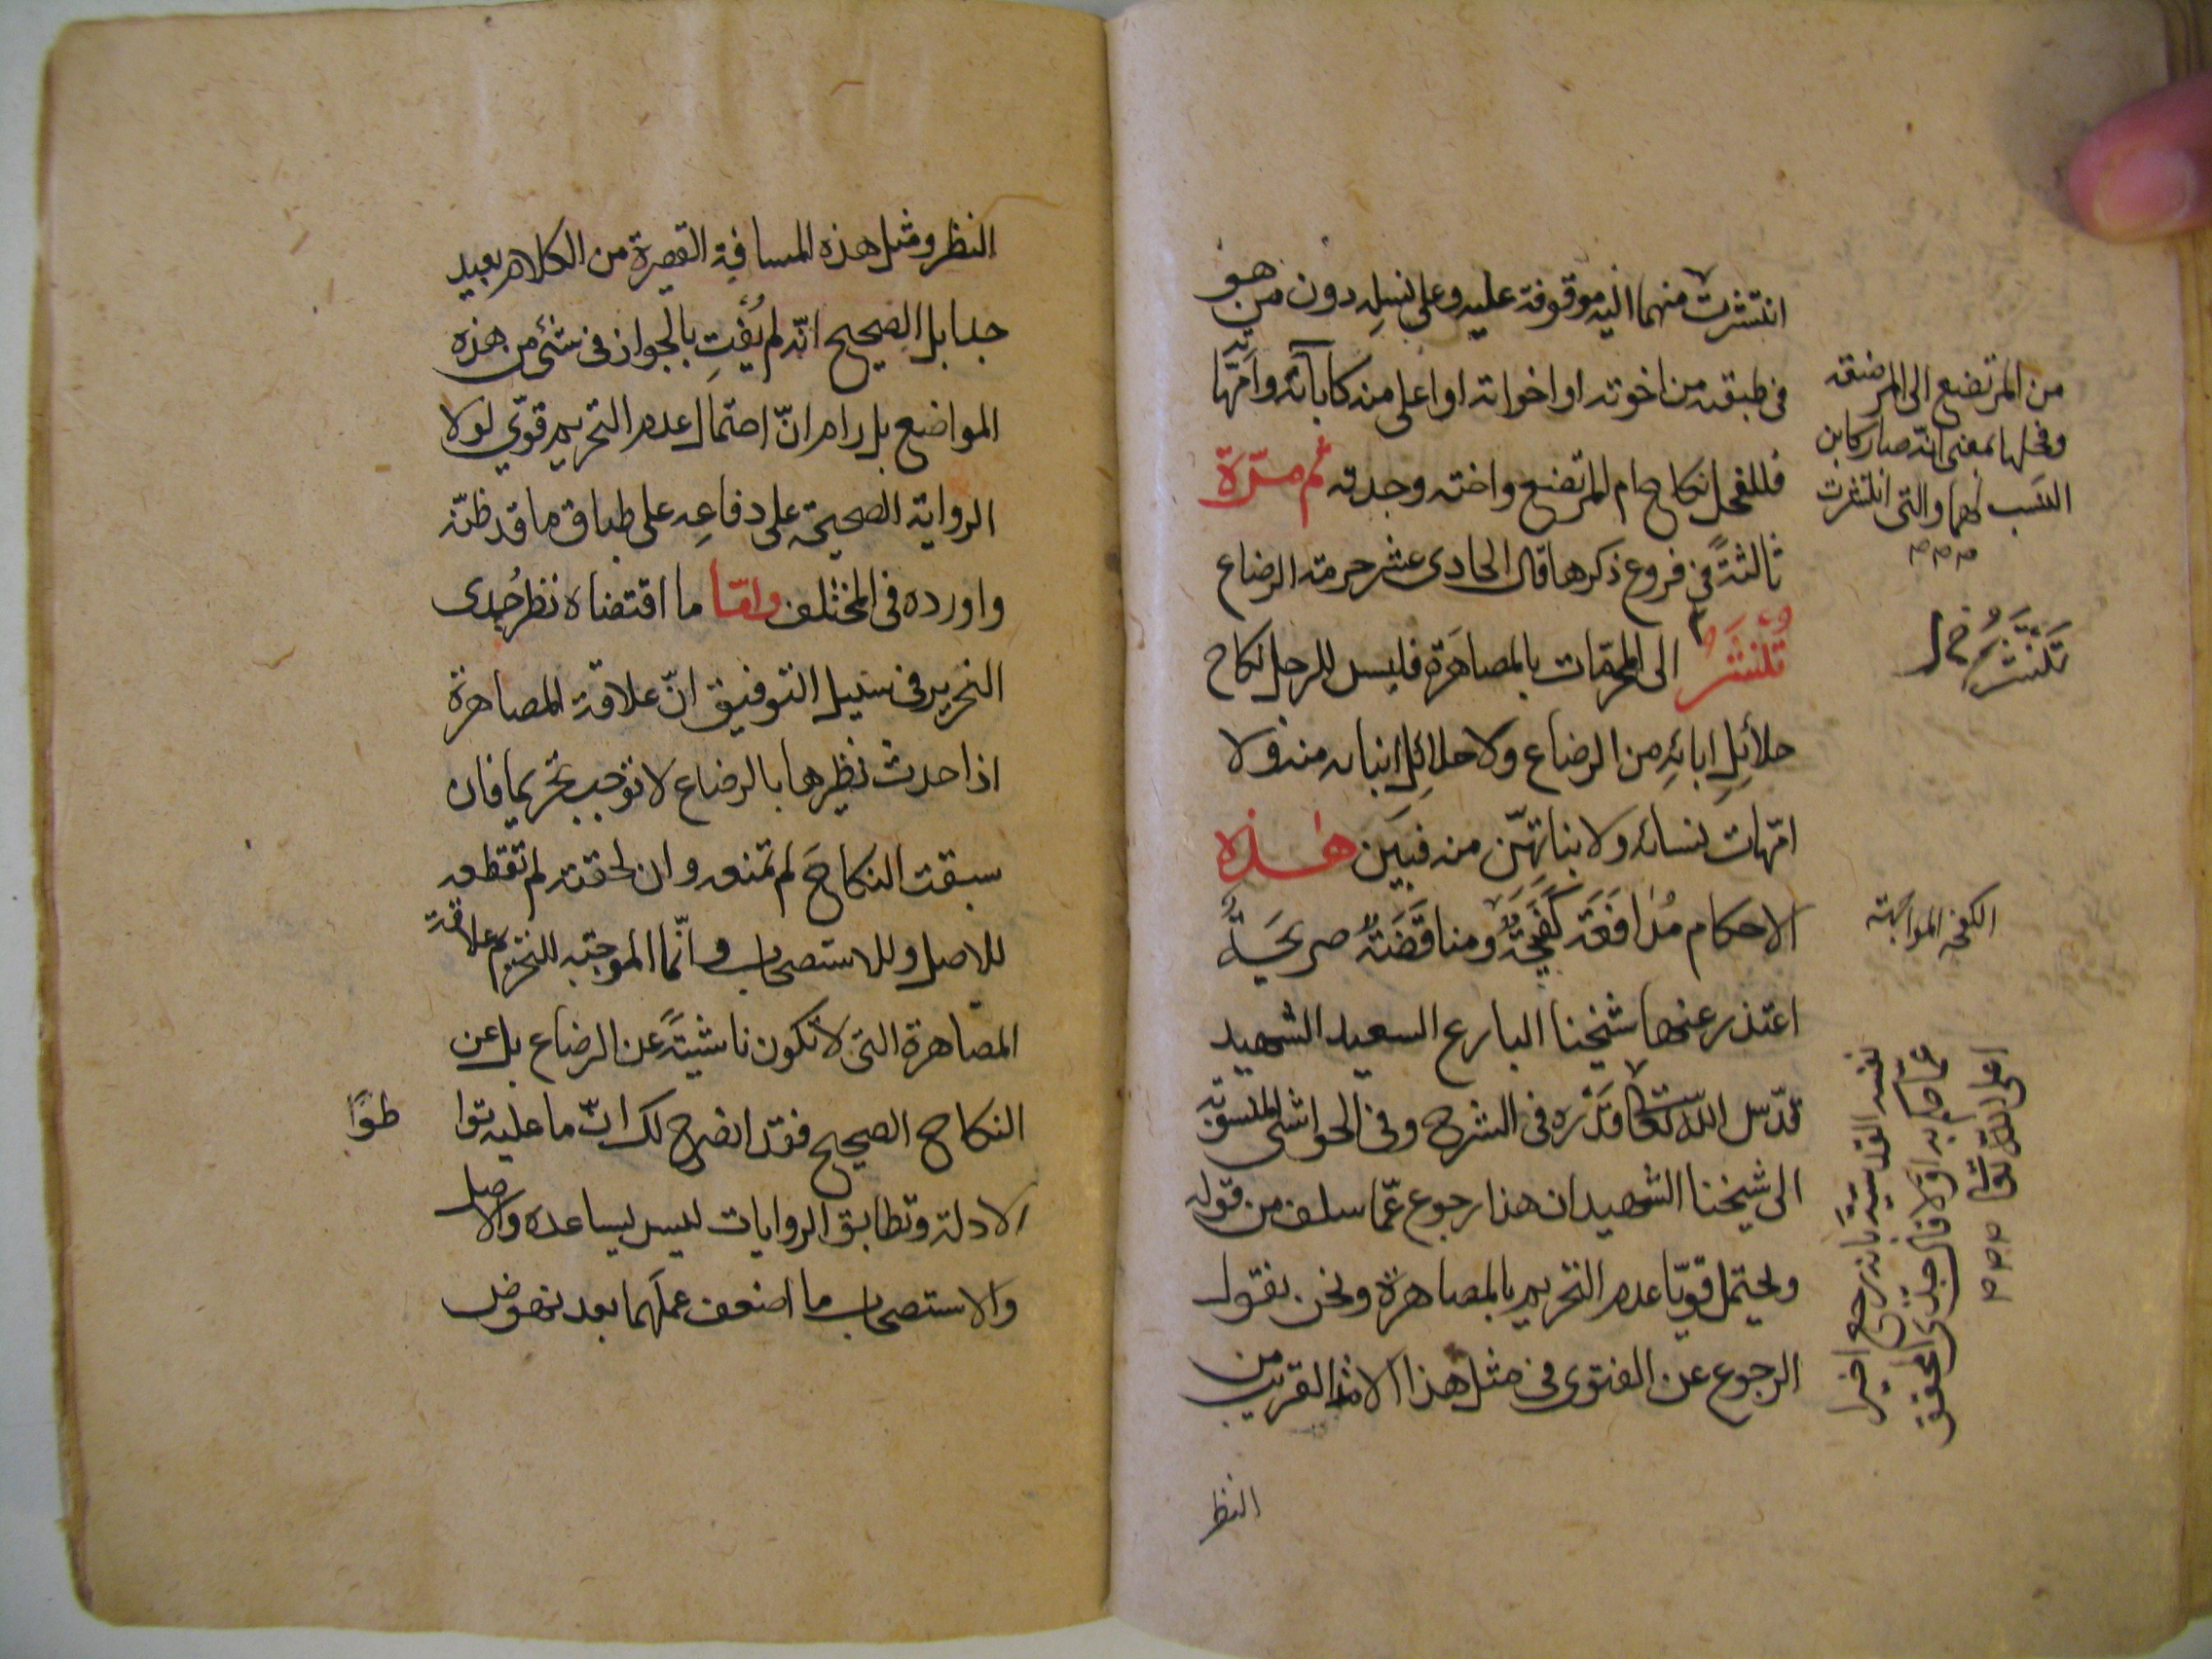 انتشرت منهما اليه موقوفة عليه وعلى نسله دون من هو
فى طبقته من اخوته او اخواته او اعلى منه كآبائه وامّها
فللفحل نكاح ام المرتضع واخته وجدته ثم مرّة
ثالثةً فى فروع ذكرها قال الحادى عشر حرمة الرضاع
تنتشر الى المحرّمات بالمصاهَرَة فليس للرجل نكاح
حلائِلِ ابائِهِ من الرضاع ولا حلائِلِ ابنائه منه ولا
امّهات نسائه ولا بناتهنّ منه فبَيَن هذه
الاحكام مُدافَعَة كَفَحِيّةٌ ومناقَضَةٌ صريحَةٌ
اعتذر عنها شيخنا البارع السعيد الشهيد
قدّس الله تعالى قدّره فى الشرح وفى الحواشى المنسوبة
الى شيخنا الشهيد ان هذا رجوع عمّا سلف من قوله
ويحتمل قويّا عدم التحريم بالمصاهرة ونحن نقول
الرجوع عن الفتوى فى مثل هذا الامد القريب من
النظر
من المرتضع الى المرضعة
وفحلها بمعنى انّه صار كابن
النسب لهما والتى انتشرت
تَنْتَشِرُ خ ل
الكفح المواجهة
نفسه القدسيّة بانه رجع اخيرا
عمّا حكم به اوّلا قال جدّى المحقق
اعلى الله تعالى
النظر ومثل هذه المسافة القصيرة من الكلام بعيد
جدا بل الصحيح انّه لم يُفْتِ بالجواز فى شئ من هذه
المواضع بل رام انّ احتمال عدم التحريم قوّي لولا
الرواية الصحيحة على دفاعِه على طباق ما قد ظنّه
واورده فى المختلف وامّا ما اقتضاه نظر جُدى
النحرير فى سبيل التوفيق انّ علاقة المصاهرة
اذا حدث نظيرها بالرضاع لا توجب تحريما فان
سبقت النكاحَ لم تمنعه وان لحقته لم تقطعه
للاصل وللاستصحاب وانّما الموجبة للتحريم علاقة
المصاهرة التى لا تكون ناشيَةً عن الرضاع بل عن
النكاح الصحيح فقد اتضح لك انّ ما عليه توا
طؤا
الادلة وتطابق الروايات ليس يساعده والاصل
والاستصحاب ما اضعف عملَهما بعد نهوض